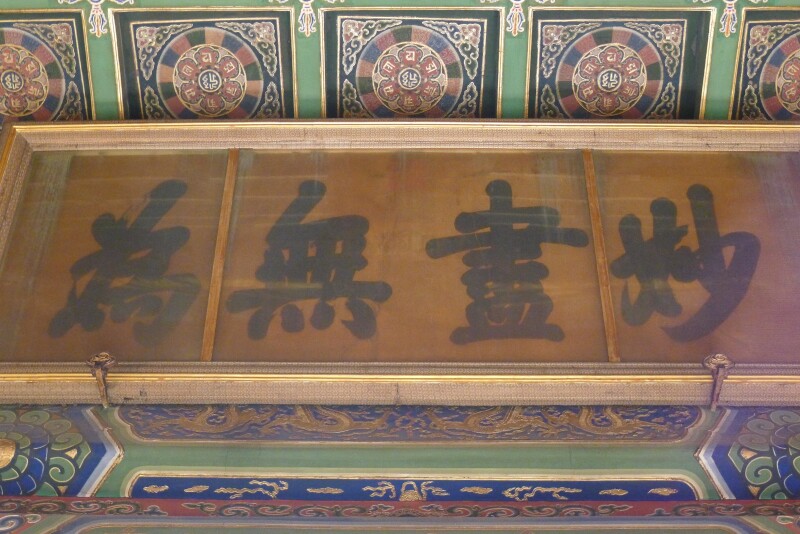 妙盡無為